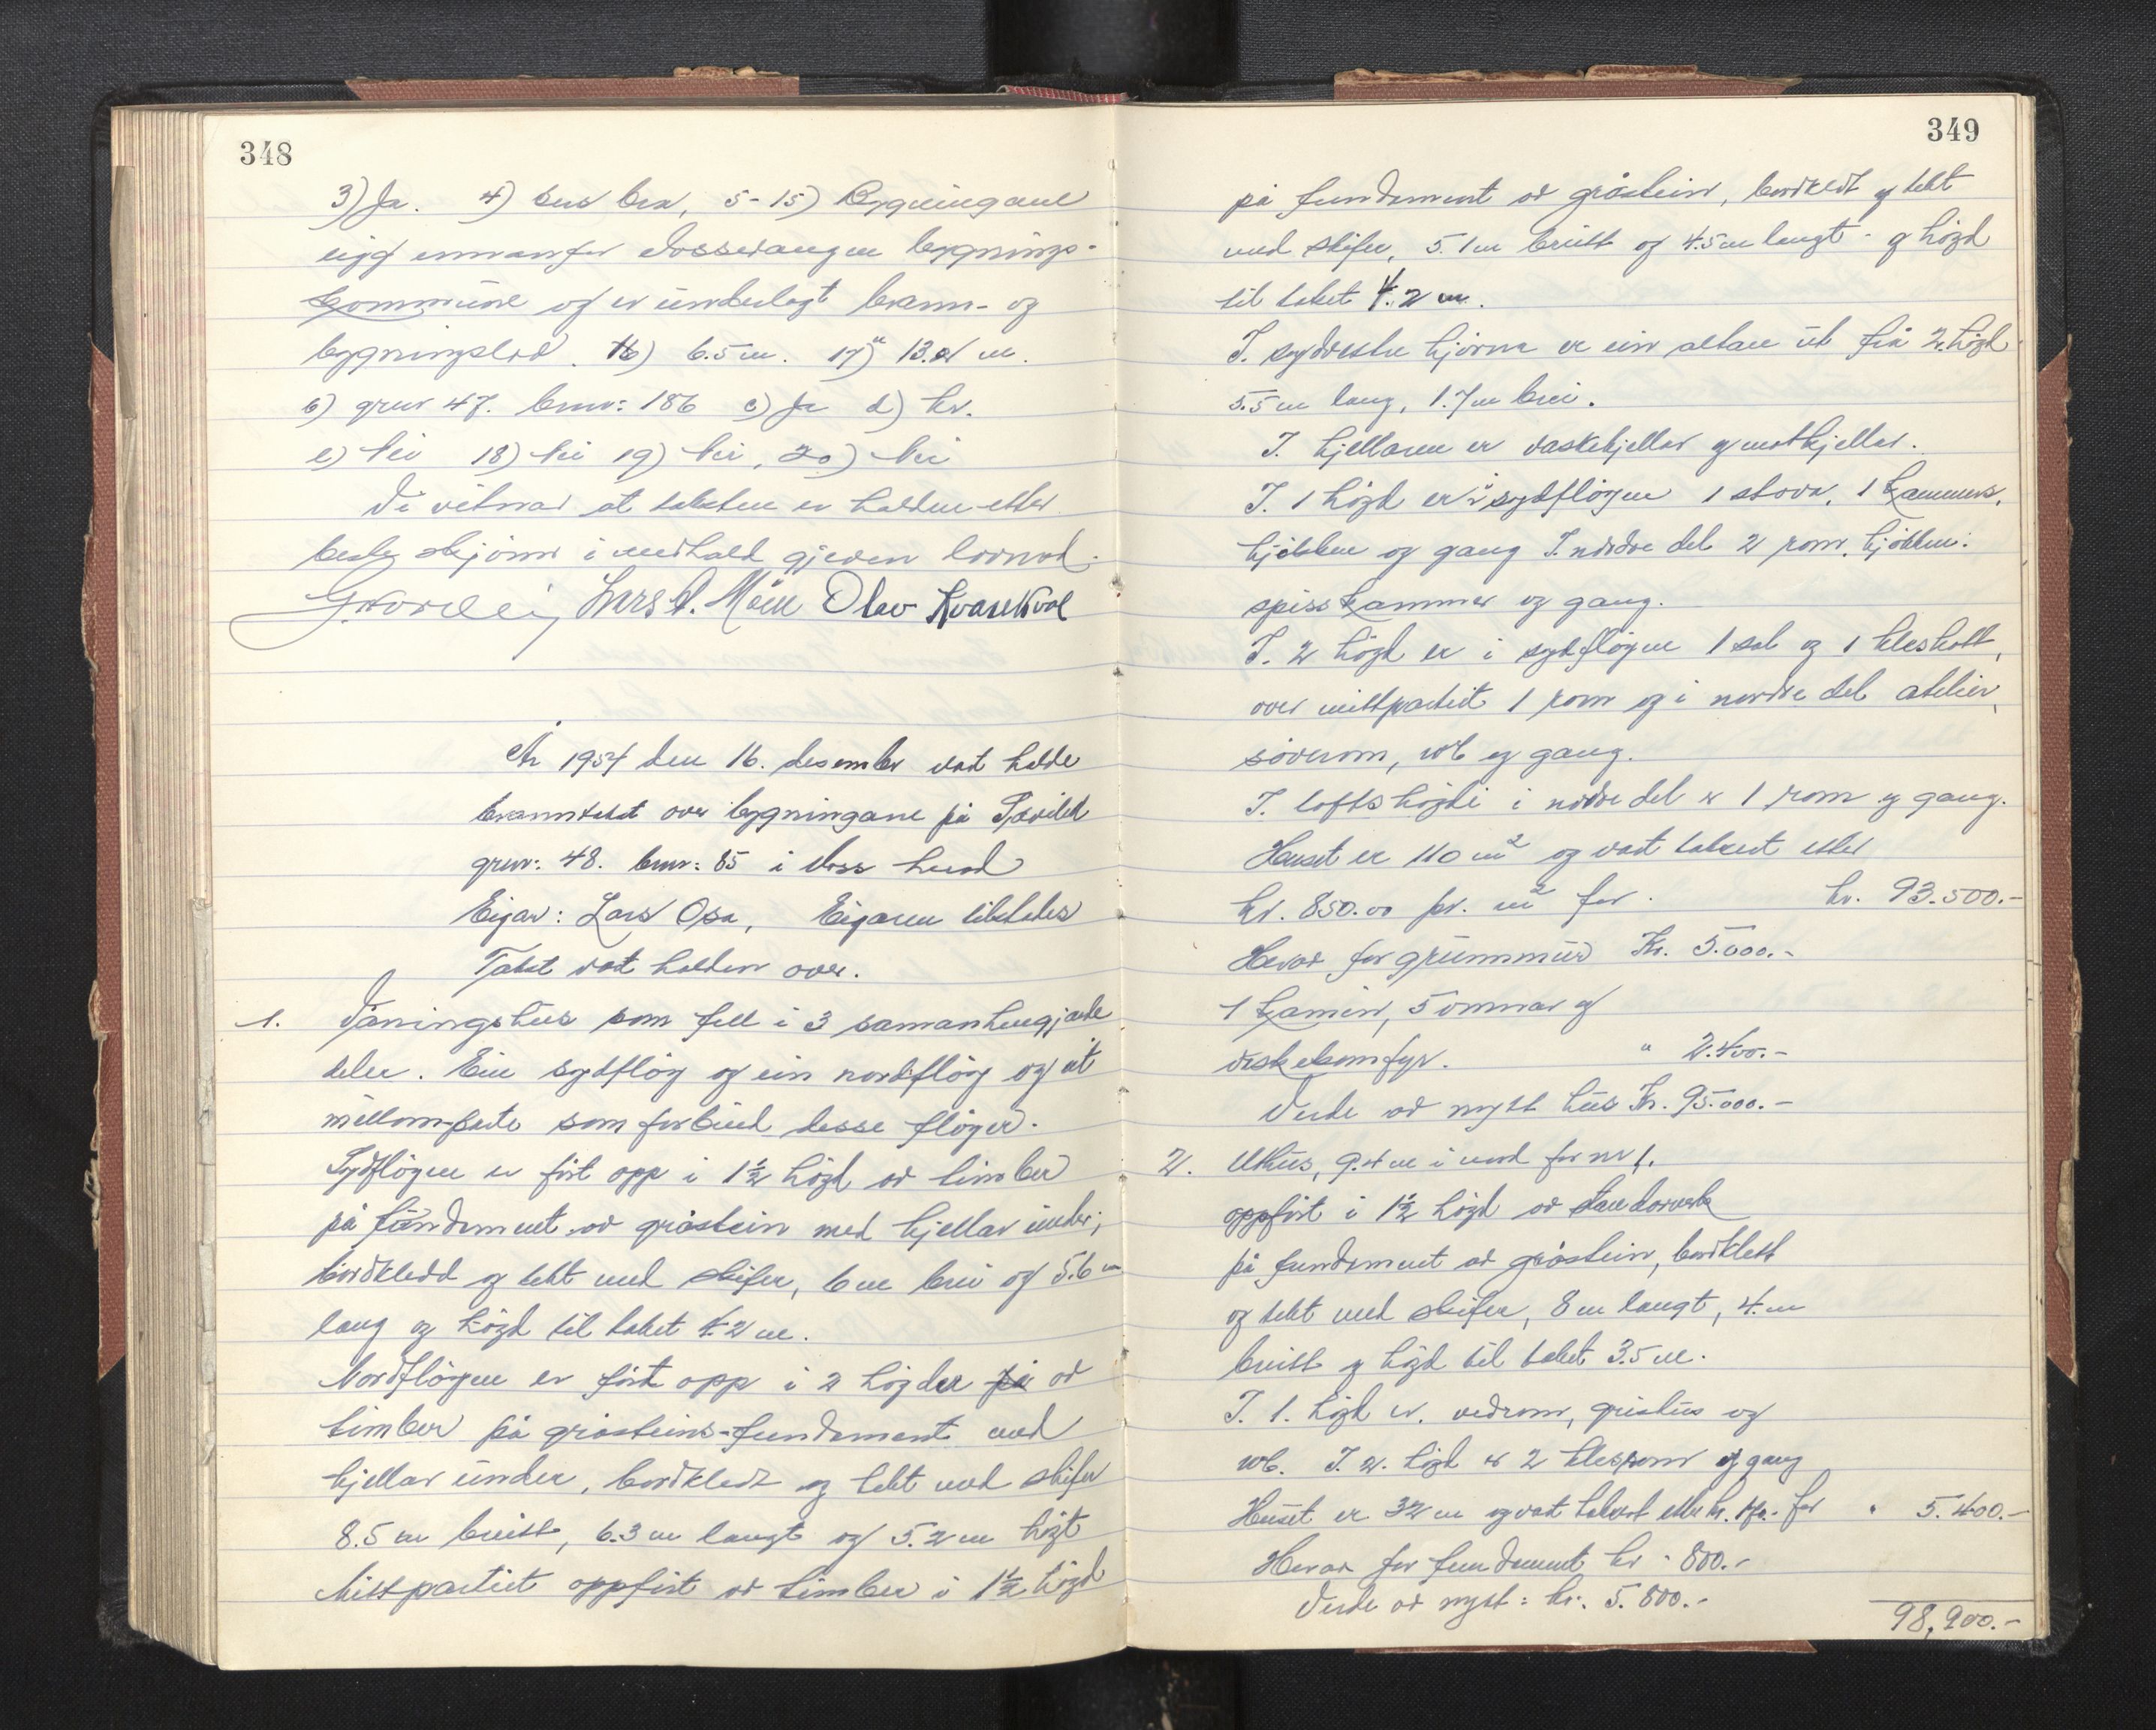 348
3) Ja. 4) bra, 5-15) Bygningane
ligg innanfor Vossevangen bygnings-
kommune og er underlagt brann- og
bygningslov. 16) 6.5 m. 17) m.
b) gnr 47. bnr: 186 c) Ja d) kr.
e) Nei 18) Nei 19) Nei, 20) Nei
Vi vitnar at taksten er halden etter
beste skjønn i medhald gjeven lovnad.
Lars Olav Kvarekval
År 1954 den 16. desember vart halde
branntakst over bygningane på
gnr: 48. bnr: 85 i Voss herad
Eigar: Lars Osa, Eigaren tilstades
Takst vart halden over.
1. Våningshus som fell i 3 samanhengjande
deler. Ein sydfløy og ein nordfløy og eit
millom-parti som forbind desse fløyer.
Sydfløyen er ført opp i 1½ høgd av timber
på fundament av gråstein med kjellar under,
bordkledd og tekt med skifer, 6 m brei og 5.6 m
lang og høgd til taket 4.2 m.
Nordfløyen er ført opp i 2 høgder på av
timber på gråsteins-fundament med
kjellar under, bordkledt og tekt med skifer
8.5 m breitt, 6.3 m langt og 5.2 m høgt
Mittpartiet oppført av timber i 1½ høgd
349
på fundament av gråstein, bordkledt og tekt
med skifer, 5.1 m breitt og 4.5 m langt - og høgd
til taket 4.2 m.
I. sydvestre hjørna er ein altan ut frå 2. høgd
5.5 m lang, 1.7 m brei.
I. kjellaren er vaskekjellar og matkjellar.
I. 1 høgd er i sydfløyen 1 stova, 1 kammers,
kjøkken og gang I. nordre del 2 rom, kjøkken.
spisskammer og gang.
I. 2 høgd er i sydfløyen 1 sal og 1 kleskott,
over mittpartiet 1 rom og i nordre del atelier,
soverom, wc og gang.
I. loftshøgdi i nordre del er 1 rom og gang.
Huset er 110 m² og vart taksert etter
kr. 850.00 pr. m² for kr. 93.500.-
Herav for grunnmur Kr. 5.000.-
1 kamin, 5 omnar og
vaskekomfyr. " 2.400.-
Verde av nytt hus Kr. 95.000.-
2. Uthus, 9.4 m i nord for nr 1.
oppført i 1½ høgd av standarverk
på fundament av gråstein, bordklett
og tekt med skifer, 8 m langt, 4. m
breitt og høgd til taket 3.5 m.
I. 1. høgd er. vedrom, grishus og
wc. I. 2. høgd er 2 klesrom og gang
Huset er 32 m og vart taksert etter kr. for " 5.400.-
Herav for fundament kr. 800.-
Verde av nytt: kr. 5.800.-
98,900.-